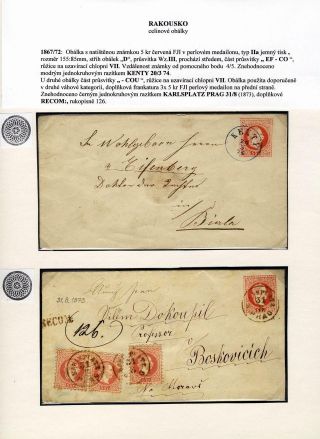 RAKOUSKO
celinové obálky
1867/72: Obálka s natištěnou známkou 5 kr červená FJI v perlovém medailonu, typ IIa jemný tisk,
rozměr 155:85mm, střih obálek „D“, průsvitka Wz.III, prochází středem, část průsvitky „ EF - CO “,
růžice na uzavírací chlopni VII. Vzdálenost známky od pracovního bodu 4/5. Znehodnoceno
modrým jednokruhovým razítkem KENTY 20/3 74.
Část průsvitky „ - COU “, růžice na uzavírací chlopni VII. Obálka použita doporučeně
v druhé váhové kategorii, doplňková frankatura 3x 5 kr FJI perlový medailon na přední straně.
Znehodnoceno černým jednokruhovým razítkem KARLSPLATZ PRAG 31/8 (1873), doplňkové
RECOM:, rukopisně 126.
Sr Wohlgeboren Herrn
Eisenberg
Biala
31.8.1873
RECOM:
126.
Vilém Dokoupil
Professor
v
Boskovicích
na Moravě